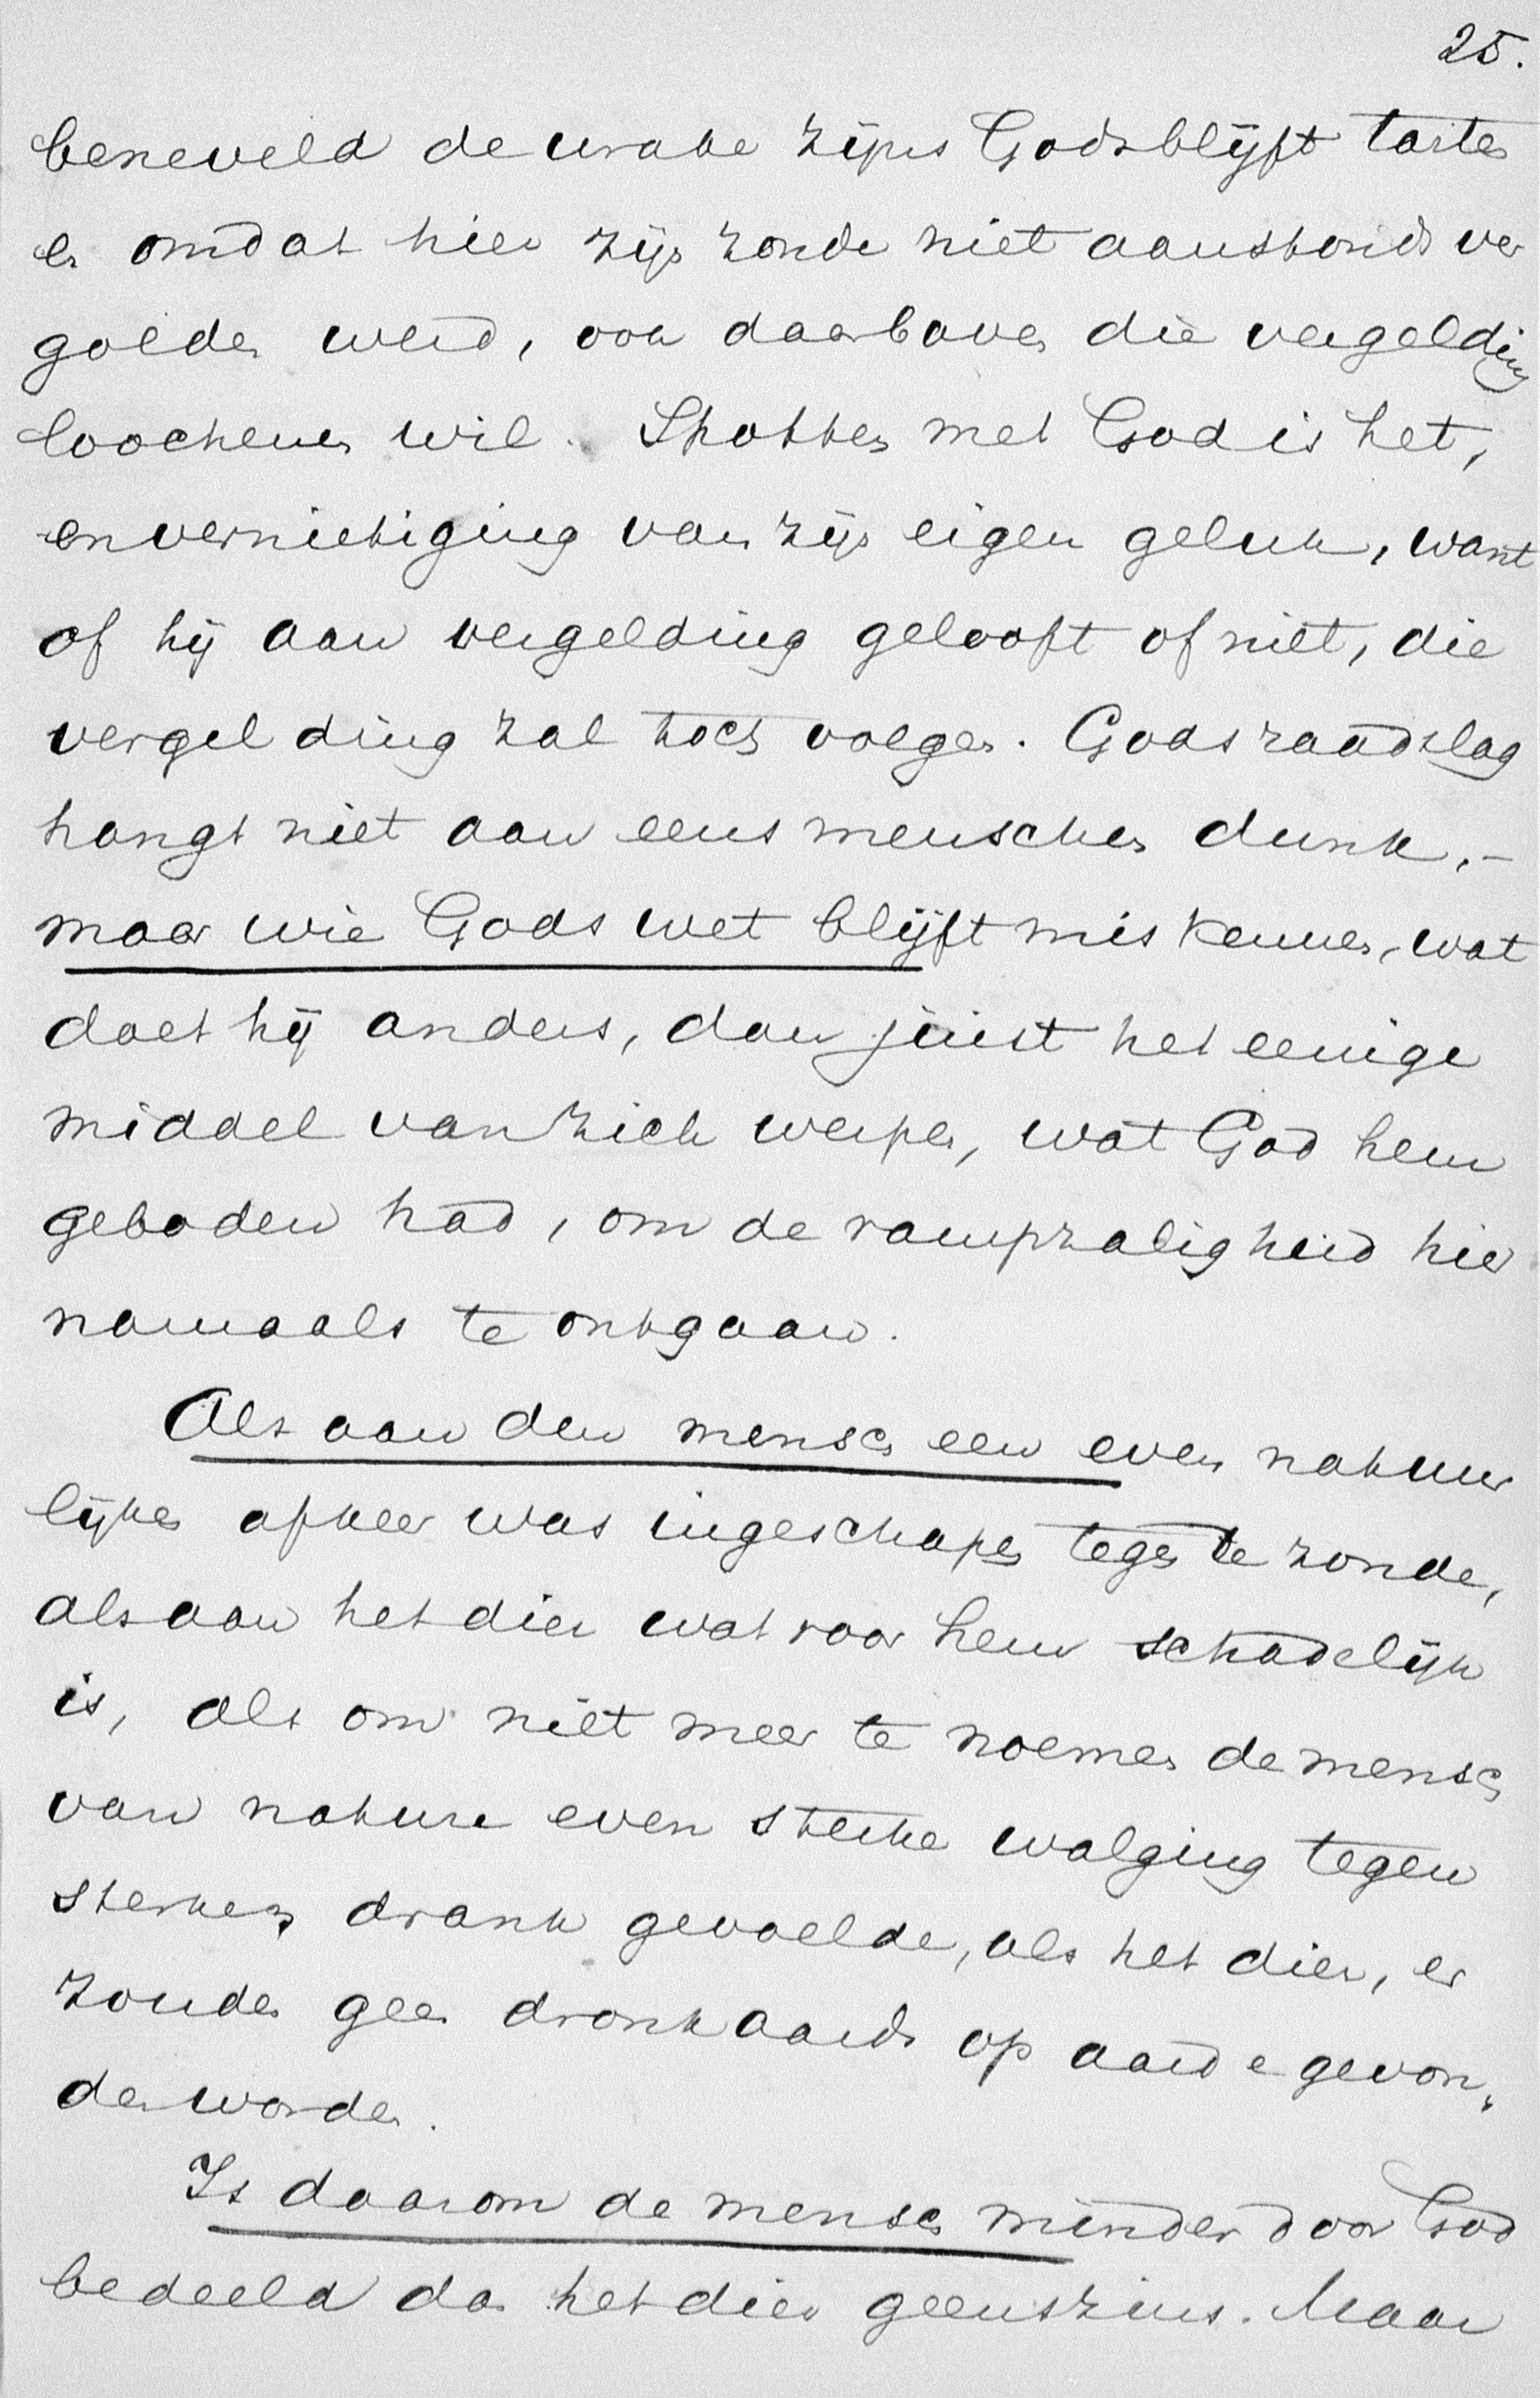 25.
beneveld de wrake zijns Gods blijft tarten
en omdat hier zijn zonde niet aanstonds ver
golden werd, ook daarboven die vergelding
loochenen wil. Spotten met God is het,
en vernietiging van zijn eigen geluk, want
of hij aan vergelding gelooft of niet, die
vergelding zal toch volgen. Gods raadslag
hangt niet aan eens menschen dunk, -
maar wie Gods wet blijft miskennen, wat
doet hij anders, dan juist het eenige
middel van zich werpen, wat God hem
geboden had, om de rampzaligheid hier
namaals te ontgaan.
Als aan den mensch een even natuur
lijken afkeer was ingeschapen tegen de zonde,
als aan het dier wat voor hem schadelijk
is, als om niet meer te noemen de mensch
van nature even sterke walging tegen
sterken drank gevoelde, als het dier, er
zouden geen dronkaards op aarde gevon,
den worden.
Is daarom de mensch minder door God
bedeeld dan het dier geenszins. Maar